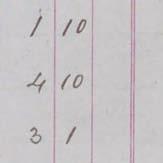 1 10
4 10
3 1